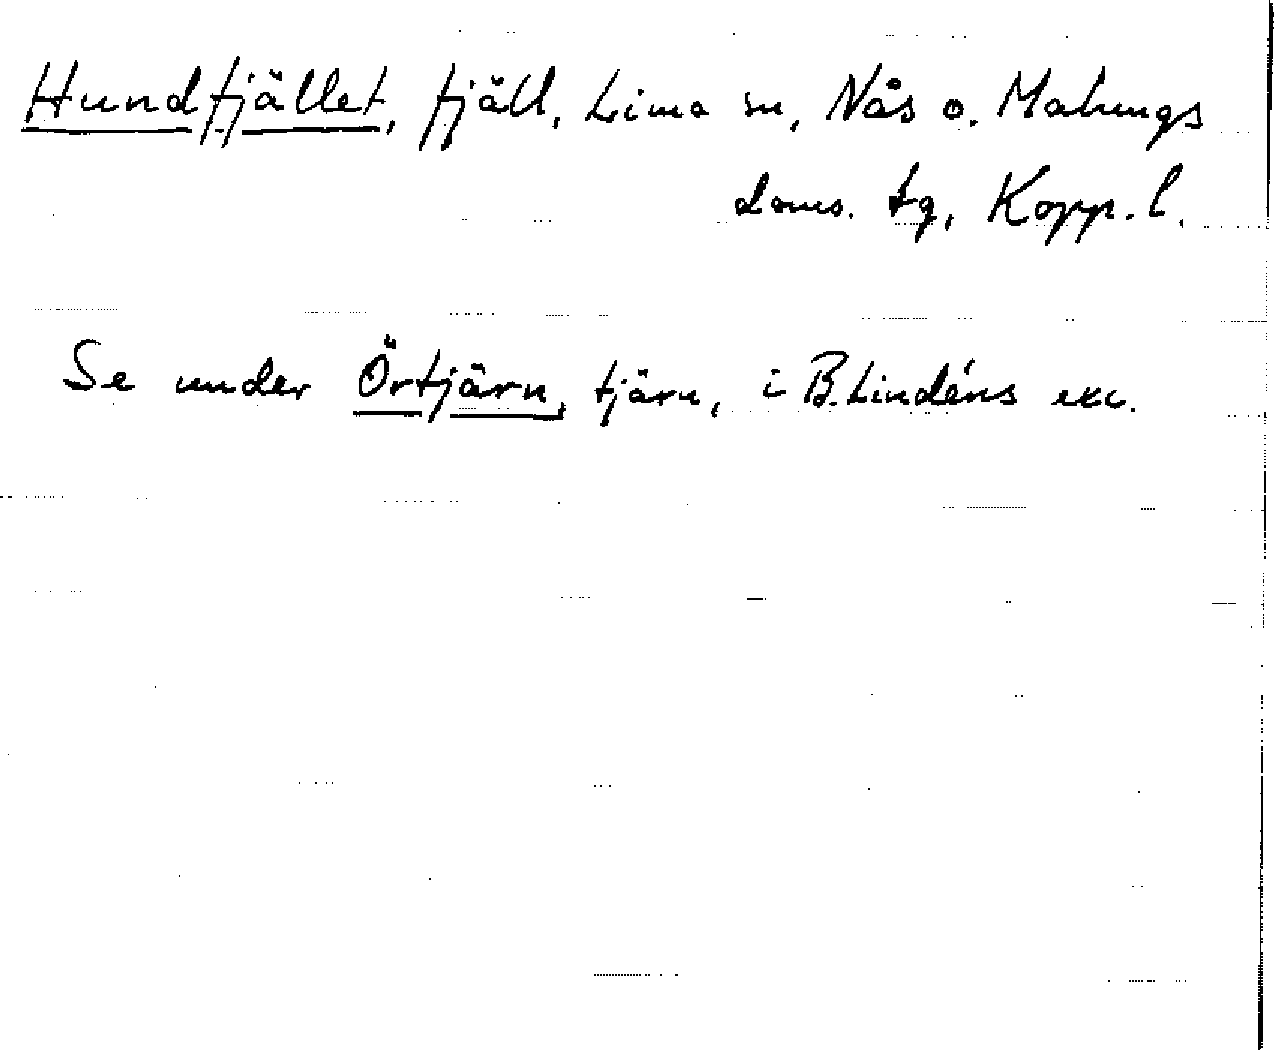 Hundfjället, fjäll, Lima sn, Nås o. Malungs
doms. tg, Kopp. l.
Se under Örtjärn, tjärn, i B. Lindéns exc.